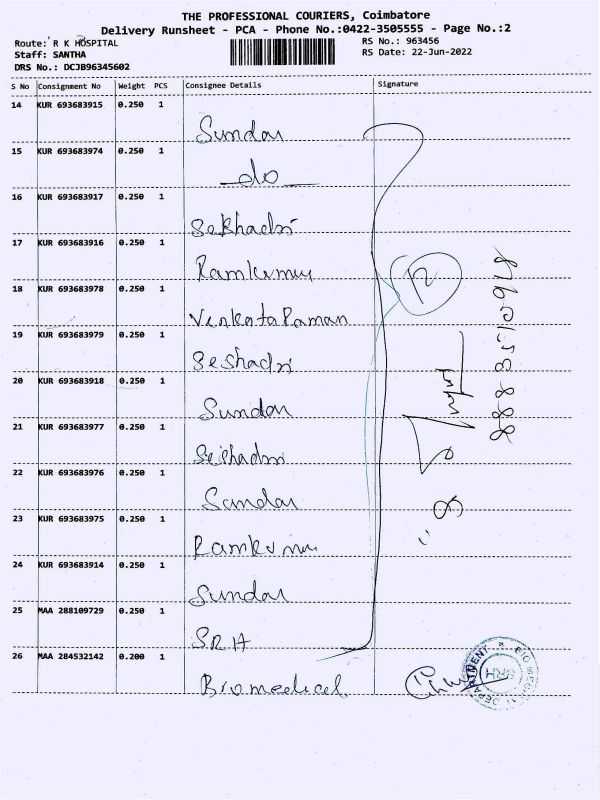 THE PROFESSIONAL COURIERS, Coimbatore
Delivery Runsheet - PCA - Phone No.:0422-3505555 - Page No.:2
Route: R K HOSPITAL
Staff: SANTHA
DRS No.: DCJB96345602
RS No.: 963456
RS Date: 22-Jun-2022
S No Consignment No Weight PCS Consignee Details Signature
14 KUR 693683915 0.250 1
Sundar
15 KUR 693683974 0.250 1
do
16 KUR 693683917 0.250 1
Seshadri
17 KUR 693683916 0.250 1
Ramkumar
18 KUR 693683978 0.250 1
VenkataRaman
19 KUR 693683979 0.250 1
Seshadri
20 KUR 693683918 0.250 1
Sundar
21 KUR 693683977 0.250 1
Seshadri
22 KUR 693683976 0.250 1
Sundar
23 KUR 693683975 0.250 1
Ramkumar
24 KUR 693683914 0.250 1
Sundar
25 MAA 288109729 0.250 1
SRH
26 MAA 284532142 0.200 1
Biomedical
DEPARTMENT
SRH